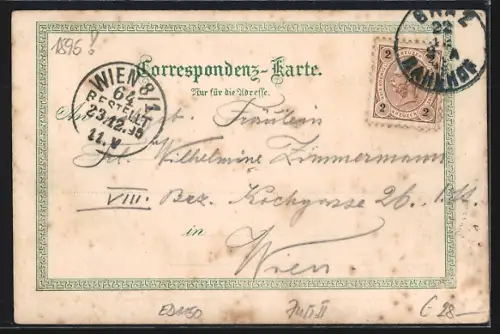 1895!
Correspondenz-Karte.
Nur für die Adresse.
GRAZ
22
BAHNHOF
WIEN 8/1
64
BESTELLT
23.12.95
11.V
2 2
2 2
An Fräulein
Wilhelmine Zimmermann
VIII. Bez. Kochgasse 26.
in
Wien
€ 28-